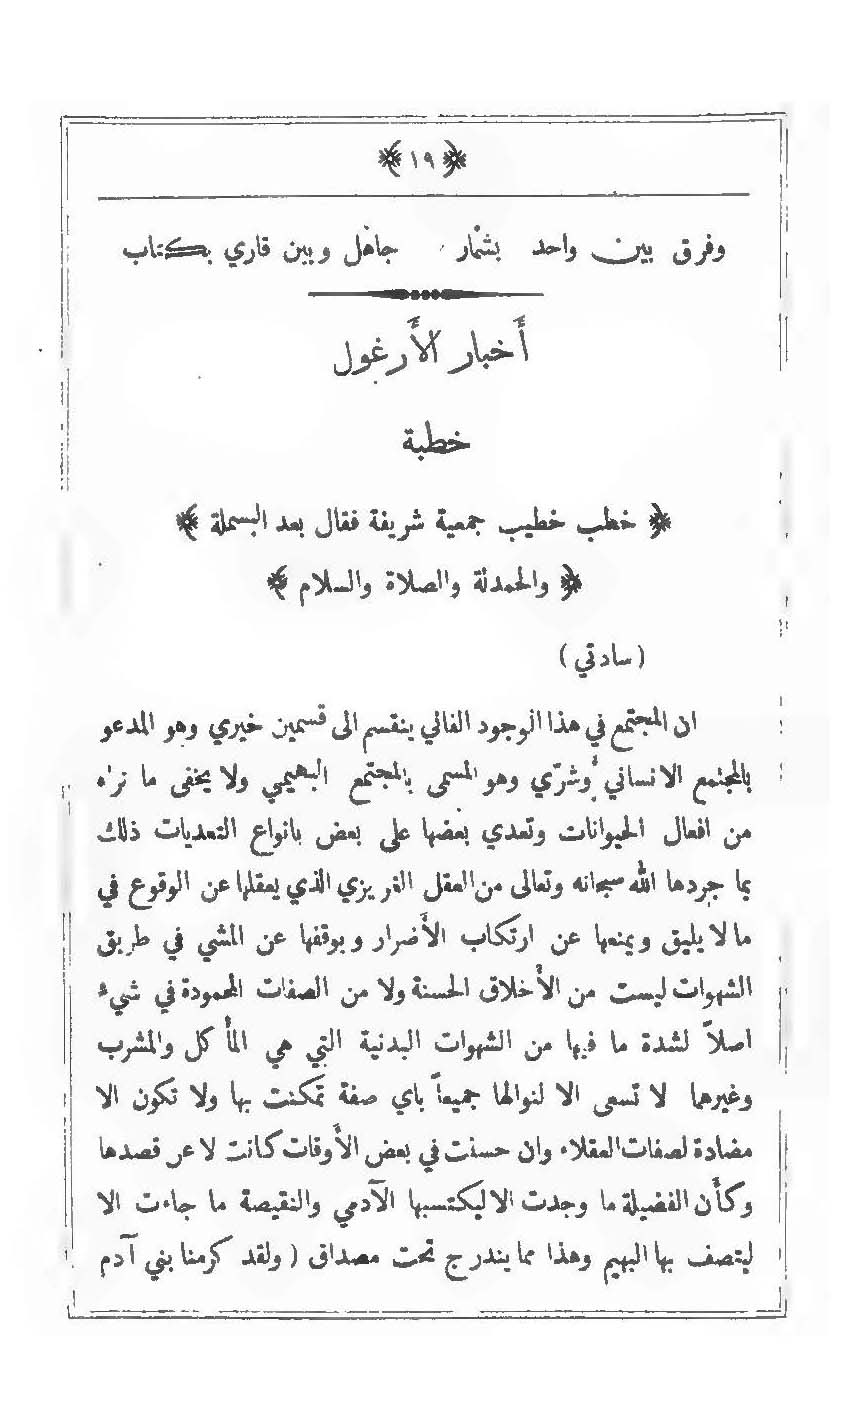 ﴿ ١٩ ﴾
وفرق بين واحد بشمار جاهل وبين قاري بكتاب
أخبار الأَرغول
خطبة
﴿ خطب خطيب جمعية شريفة فقال بعد البسملة ﴾
﴿ والحمدلة والصلاة والسلام ﴾
( سادتي )
ان المجتمع في هذا الوجود الفاني ينقسم الى قسمين خيري وهو المدعو
بالمجتمع الانساني وشرّي وهو المسمى بالمجتمع البهيمي ولا يخفى ما نراه
من افعال الحيوانات وتعدي بعضها على بعض بانواع التعديات ذلك
بما جردها الله سبحانه وتعالى من العقل الغريزي الذي يعقلها عن الوقوع في
ما لا يليق ويمنعها عن ارتكاب الأَضرار ويوقفها عن المشي في طريق
الشهوات ليست من الأَخلاق الحسنة ولا من الصفات المحمودة في شيء
اصلاً لشدة ما فيها من الشهوات البدنية التي هي المأكل والمشرب
وغيرهما لا تسعى الا لنوالها جميعاً باي صفة تمكنت بها ولا تكون الا
مضادة لصفات العقلاء وان حسنت في بعض الأَوقات كانت لا عن قصدها
وكأن الفضيلة ما وجدت الا ليكتسبها الآدمي والنقيصة ما جاءت الا
ليتصف بها البهيم وهذا مما يندرج تحت مصداق ( ولقد كرمنا بني آدم